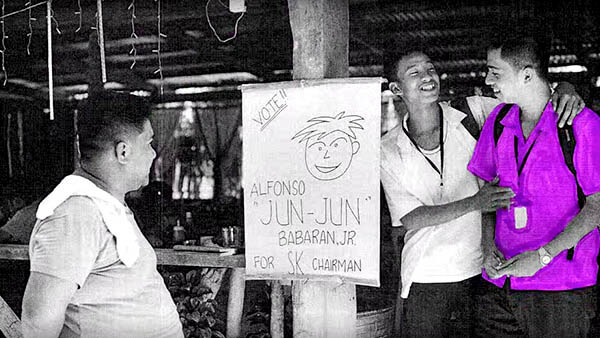 VOTE!!
ALFONSO
"JUN-JUN"
BABARAN, JR.
FOR SK CHAIRMAN